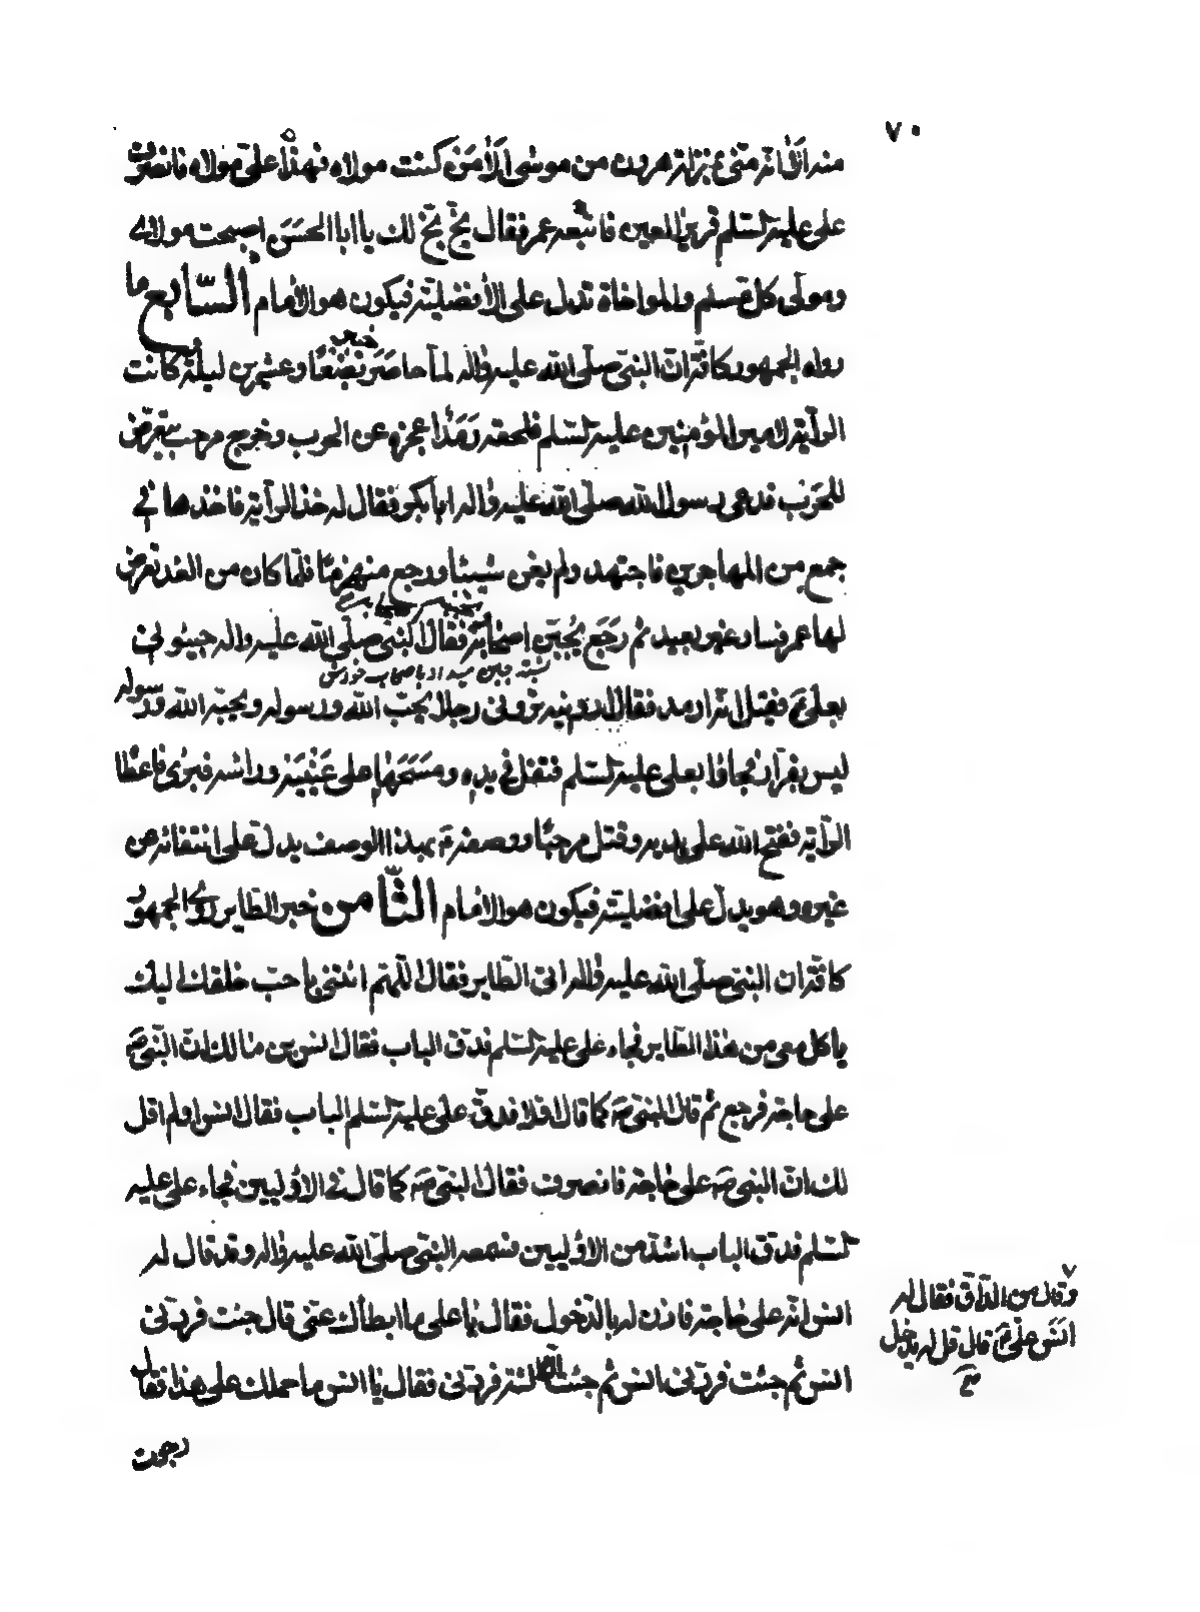 ٧٠
منه الا انه منى بمنزلة هرون من موسى الا من كنت مولاه فهذا على مولاه فانصرف
على عليه السلم قرير العين فاتبعه عمر فقال بخ بخ لك يا ابا الحسن اصبحت مولاى
ومولى كل مسلم والمواخاة تدل على الأفضلية فيكون هو الامام السابع ما
رواه الجمهور كافة ان النبى صلى الله عليه واله لما حاصر خيبر بضعا وعشرين ليلة كانت
الراية لامير المؤمنين عليه السلم فلحقه رمد اعجزه عن الحرب وخرج مرحب يتعرض
للحرب فدعى رسول الله صلى الله عليه واله ابا بكر فقال له خذ الراية فاخذها فى
جمع من المهاجرين فاجتهد ولم يغن شيئا ورجع منهزما فلما كان من الغد تعرض
لها عمر فسار غير بعيد ثم رجع يجبن اصحابه فقال النبى صلى الله عليه واله جيئونى
بعلى ع فقيل انه ارمد فقال ارونيه ترونى رجلا يحب الله ورسوله ويحبه الله ورسوله
ليس بفرار فجاؤا بعلى عليه السلم فتفل فى يده ومسحها على عينيه وراسه فبرئ فاعطا
الراية ففتح الله على يديه وقتل مرحبا ووصفه ع بهذا الوصف يدل على انتفائه عن
غيره وهو يدل على افضليته فيكون هو الامام الثامن خبر الطاير روى الجمهور
كافة ان النبى صلى الله عليه واله اتى الطاير فقال اللهم ائتنى باحب خلقك اليك
ياكل معى من هذا الطاير فجاء على عليه السلم فدق الباب فقال انس بن مالك ان النبى ص
على حاجة فرجع ثم قال النبى ص كما قال اولا فدق على عليه السلم الباب فقال انس اولم اقل
لك ان النبى ص على حاجة فانصرف فقال النبى ص كما قال فى الاوليين فجاء على عليه
السلم فدق الباب اشد من الاوليين فسمعه النبى صلى الله عليه واله وقد قال له
انس انه على حاجة فاذن له بالدخول فقال يا على ما ابطأك عنى قال جئت فردنى
انس ثم جئت فردنى انس ثم جئت الثالثة فردنى فقال يا انس ما حملك على هذا فقال
رجوت
وقال من الداق فقال له
انس على ع قال قل له يدخل